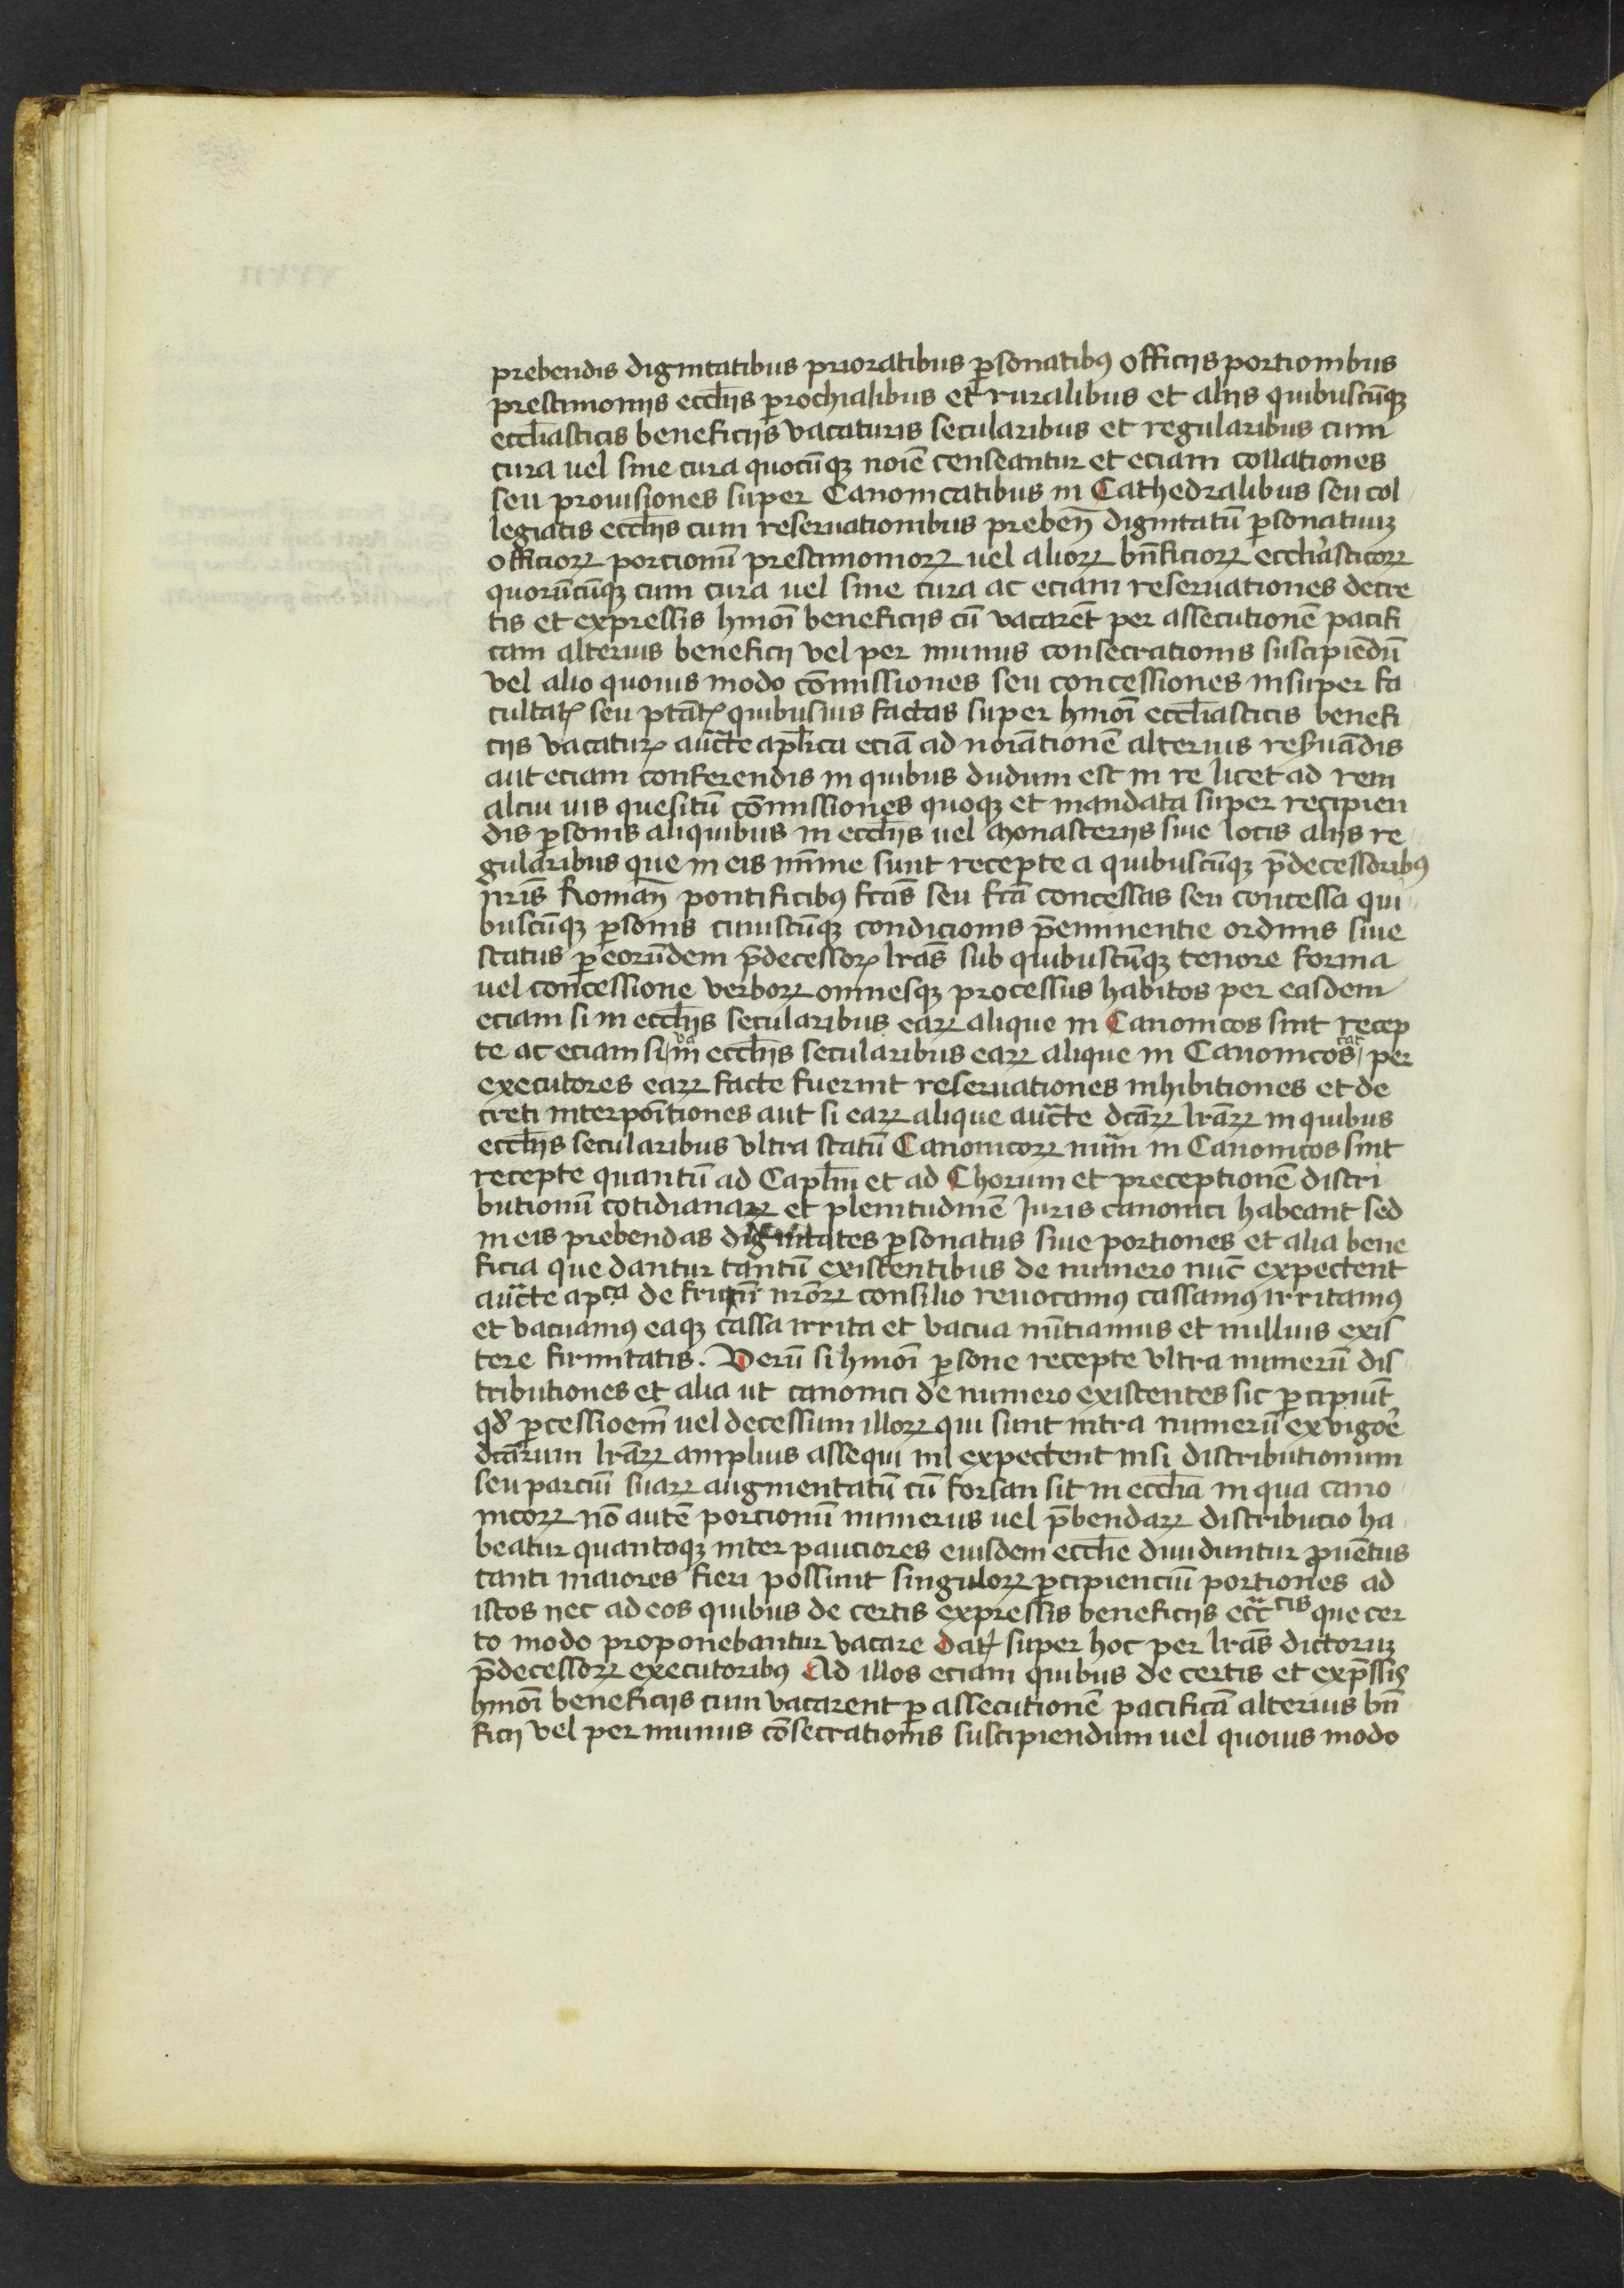 prebendis dignitatibus prioratibus ꝑsonatibꝰ officiis portionibus
prestimoniis eccłijs ꝑrochialibus et ruralibus et aliis quibuscūqꝫ
eccłiasticis beneficijs vacaturis secularibus et regularibus cum
cura uel sine cura quocūqꝫ noīe censeantur et eciam collationes
seu prouisiones super Canonicatibus in Cathedralibus seu col
legiatis eccłijs cum reseruationibus prebeñ dignitatū ꝑsonatuuꝫ
officioꝝ porcionū prestimonioꝝ uel alioꝝ bn̄ficioꝝ eccłiasticoꝝ
quorūcūqꝫ cum cura uel sine cura ac eciam reseruationes decre
tis et expressis hmōi beneficijs cū vacarēt per assecutionē pacifi
cam alterius beneficij vel per munus consecrationis suscipiēdū
vel alio quouis modo cōmissiones seu concessiones insuper fa
cultatꝭ seu ptātꝭ quibusuis factas super hmōi eccłiasticis benefi
cijs vacaturꝭ auc̄te apłica eciā ad noīationē alterius reẜuādis
aut eciam conferendis in quibus dudum est in re licet ad rem
alicui uis quesitū cōmissiones quoqꝫ et mandata super recipien
dis ꝑsonis aliquibus in eccłijs uel Monasterijs siue locis alijs re
gularibus que in eis mīme sunt recepte a quibuscūqꝫ p̄decessoribꝰ
nr̄is Romañ pontificibꝰ fc̄as seu fc̄a concessas seu concessa qui
buscūqꝫ ꝑsonis cuiuscūqꝫ condicionis p̄eminentie ordinis siue
status ꝑ eorūdem p̄decessorꝭ lr̄as sub quibuscūqꝫ tenore forma
uel concessione verboꝝ omnesqꝫ processus habitos per easdem
eciam si in eccłijs secularibus eaꝝ alique in Canonicos sint recep
te ac eciam si in eccłijs secularibus eaꝝ alique in Canonicos per
executores eaꝝ facte fuerint reseruationes inhibitiones et de
creti interpoītiones aut si eaꝝ alique auc̄te dc̄aꝝ lr̄aꝝ in quibus
eccłijs secularibus vltra statū Canonicoꝝ nūm in Canonicos sint
recepte quantū ad Capłm et ad Chorum et preceptionē distri
butionū cotidianaꝝ et plenitudinē Juris canonici habeant sed
in eis prebendas dignitates ꝑsonatus siue portiones et alia bene
ficia que dantur tantū existentibus de numero nūc expectent
auc̄te apᶜᵃ de frm̄ nr̄oꝝ consilio reuocamꝰ cassamꝰ irritamꝰ
et vacuamꝰ eaqꝫ cassa irrita et vacua nūtiamus et nullius exis
tere firmitatis. Verū si hmōi ꝑsone recepte vltra numerū dis
tributiones et alia ut canonici de numero existentes sic ꝑcipiūt
qd̄ ꝑ cessioem̄ uel decessum illoꝝ qui sunt intra numerū ex vigoē
dc̄arum lr̄aꝝ amplius assequi nl̄ expectent nisi distributionum
seu parciū suaꝝ augmentatū cū forsan sit in eccłia in qua cano
nicoꝝ nō autē porcionū numerus uel p̄bendaꝝ distributio ha
beatur quantoqꝫ inter pauciores eiusdem eccłie diuiduntur ꝓuētus
tanti maiores fieri possunt singuloꝝ ꝑcipienciū portiones ad
istos nec ad eos quibus de certis expressis beneficijs ecc̄ᶜⁱˢ que cer
to modo proponebantur vacare datꝭ super hoc per lr̄as dictoruꝫ
p̄decessoꝝ executoribꝰ Ad illos eciam quibus de certis et exp̄ssis
hmōi beneficijs cum vacarent ꝑ assecutionē pacificā alterius bn̄
ficij vel per munus cōsecrationis suscipiendum uel quouis modo